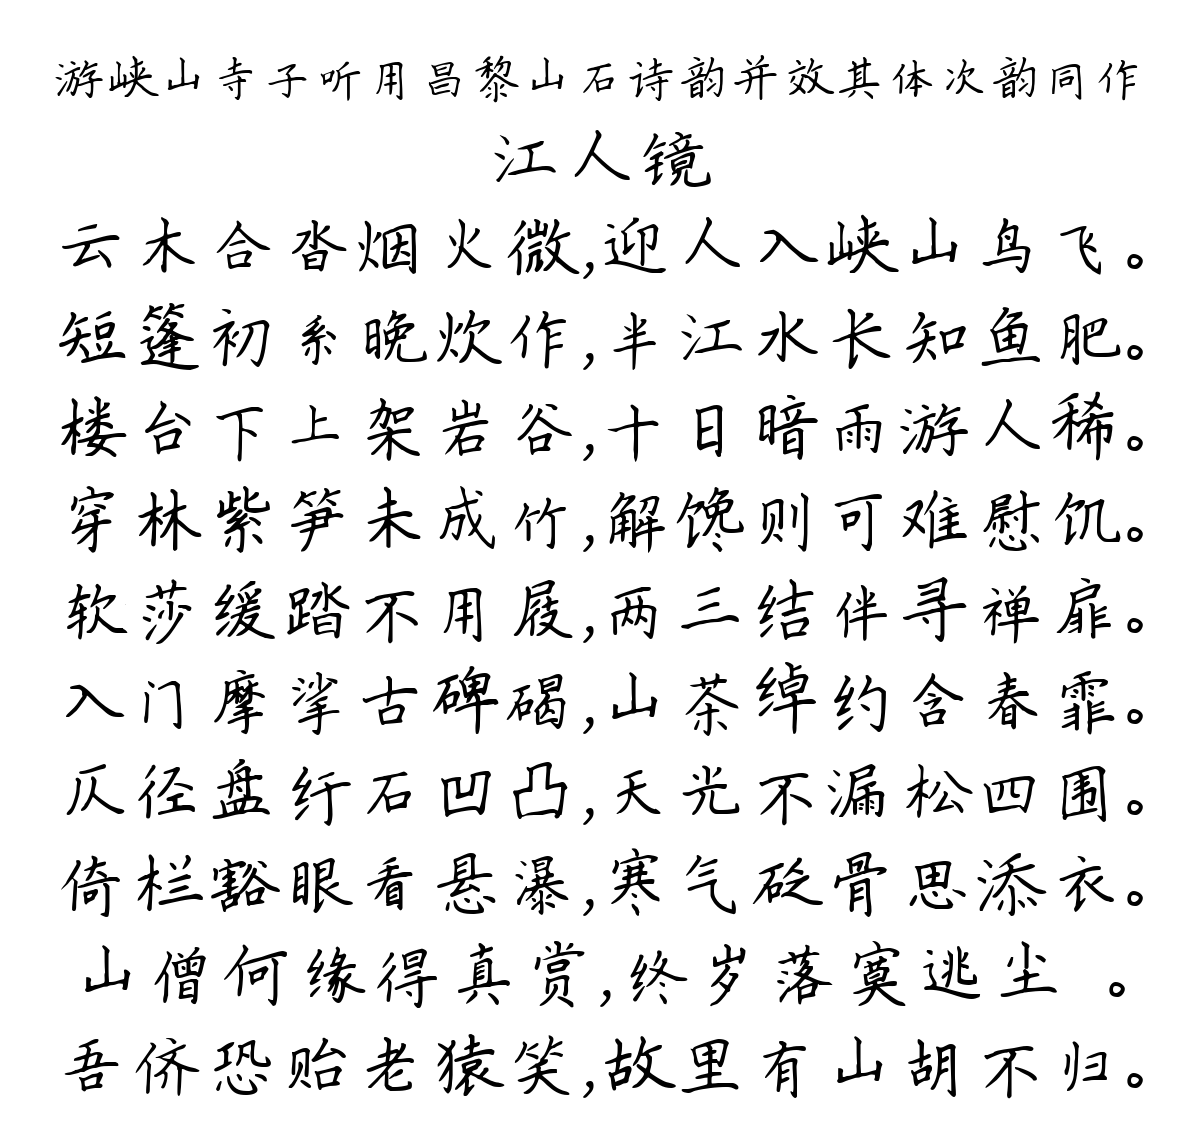 游峡山寺子听用昌黎山石诗韵并效其体次韵同作
江人镜
云木合沓烟火微,迎人入峡山鸟飞。
短篷初系晚炊作,半江水长知鱼肥。
楼台下上架岩谷,十日暗雨游人稀。
穿林紫笋未成竹,解馋则可难慰饥。
软莎缓踏不用屐,两三结伴寻禅扉。
入门摩挲古碑碣,山茶绰约含春霏。
仄径盘纡石凹凸,天光不漏松四围。
倚栏豁眼看悬瀑,寒气砭骨思添衣。
山僧何缘得真赏,终岁落寞逃尘 。
吾侪恐贻老猿笑,故里有山胡不归。